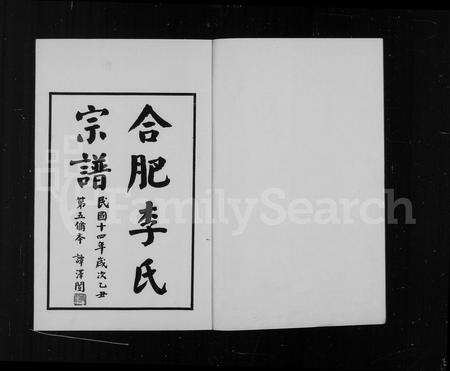 合肥李氏
宗譜
民國十四年歲次乙丑
第五修本 譚澤闓
FamilySearch